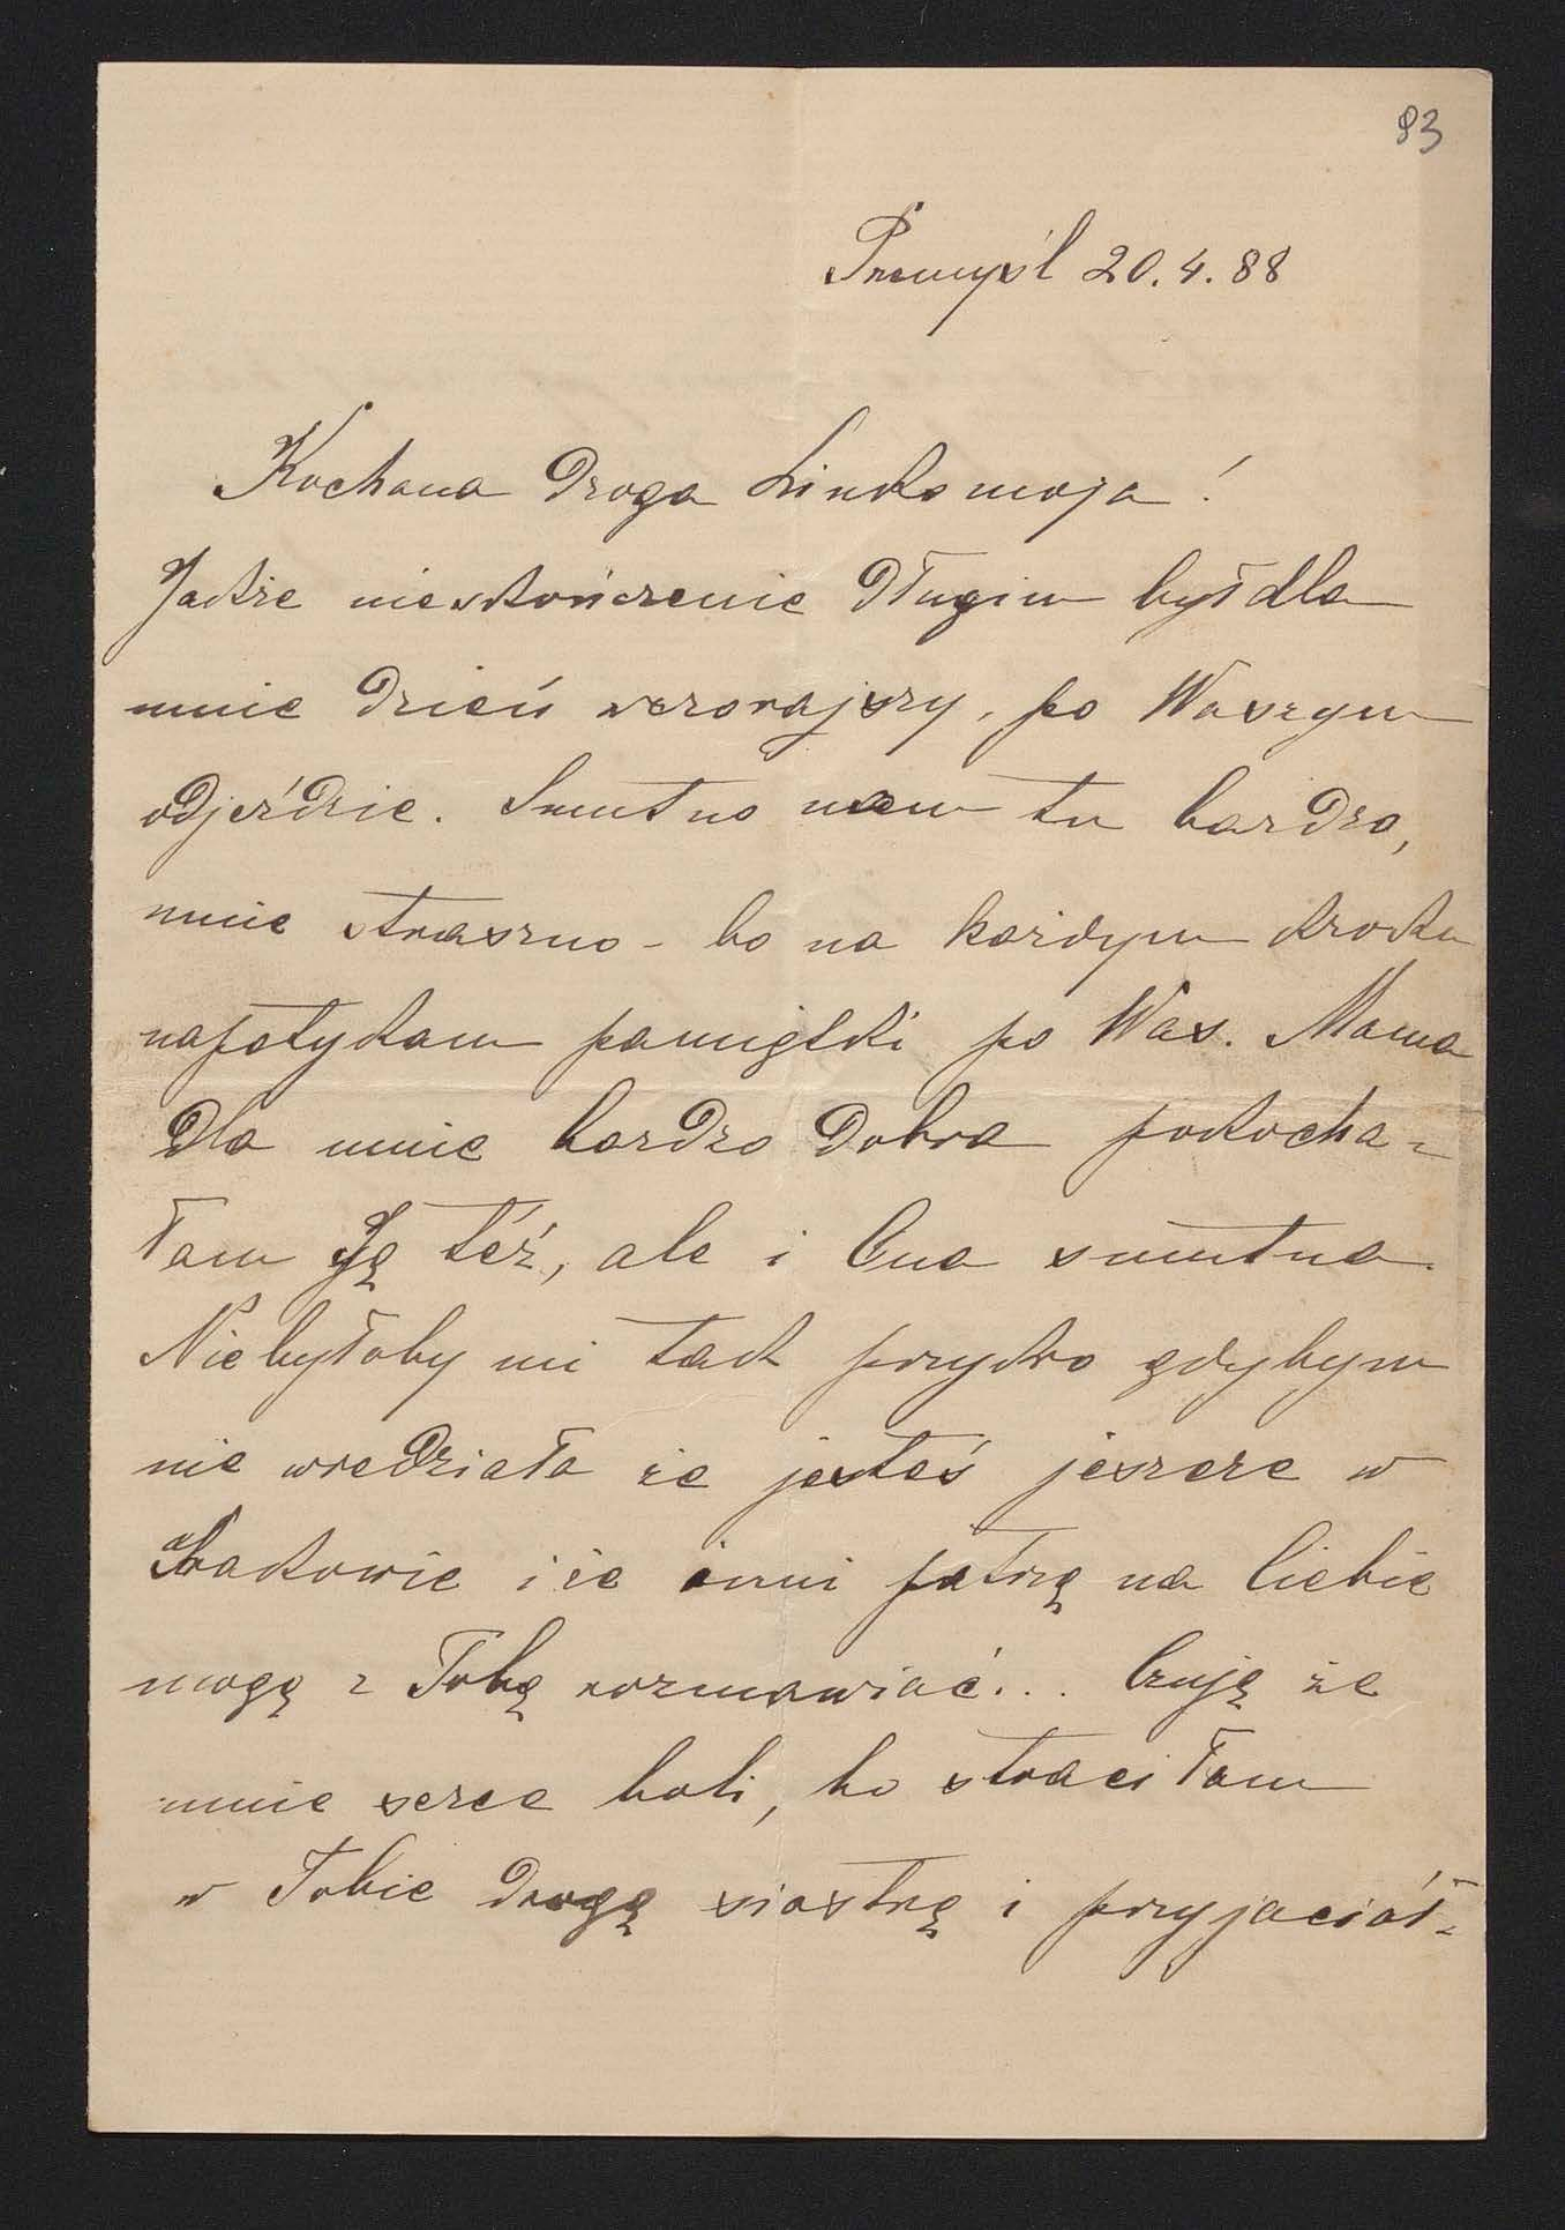 83
Przemyśl 20.4.88
Kochana Droga Linko moja!
Jakże nieskończenie długim był dla
mnie dzień wczorajszy, po Waszym
odjeździe. Smutno nam tu bardzo,
mnie straszno - bo na każdym kroku
napotykam pamiątki po Was. Mama
dla mnie bardzo dobra pokocha=
łam Ją też, ale i Ona smutna.
Niebyłoby mi tak przykro gdybym
nie wiedziała że jesteś jeszcze w
Krakowie i że inni patrzą na Ciebie
mogą z Tobą rozmawiać... Czuję że
mnie serce boli, bo straciłam
w Tobie drogą siostrę i przyjaciół=